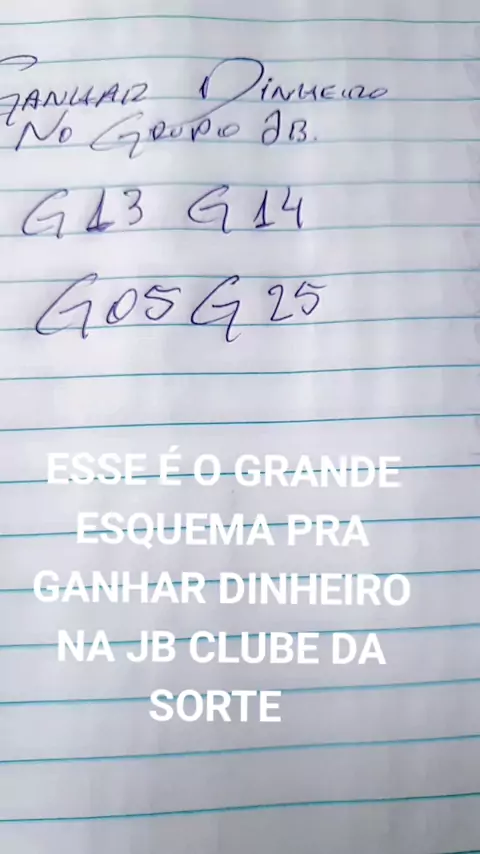 GANHAR DINHEIRO
NO GRUPO JB.
G13 G14
G05 G25
ESSE É O GRANDE
ESQUEMA PRA
GANHAR DINHEIRO
NA JB CLUBE DA
SORTE